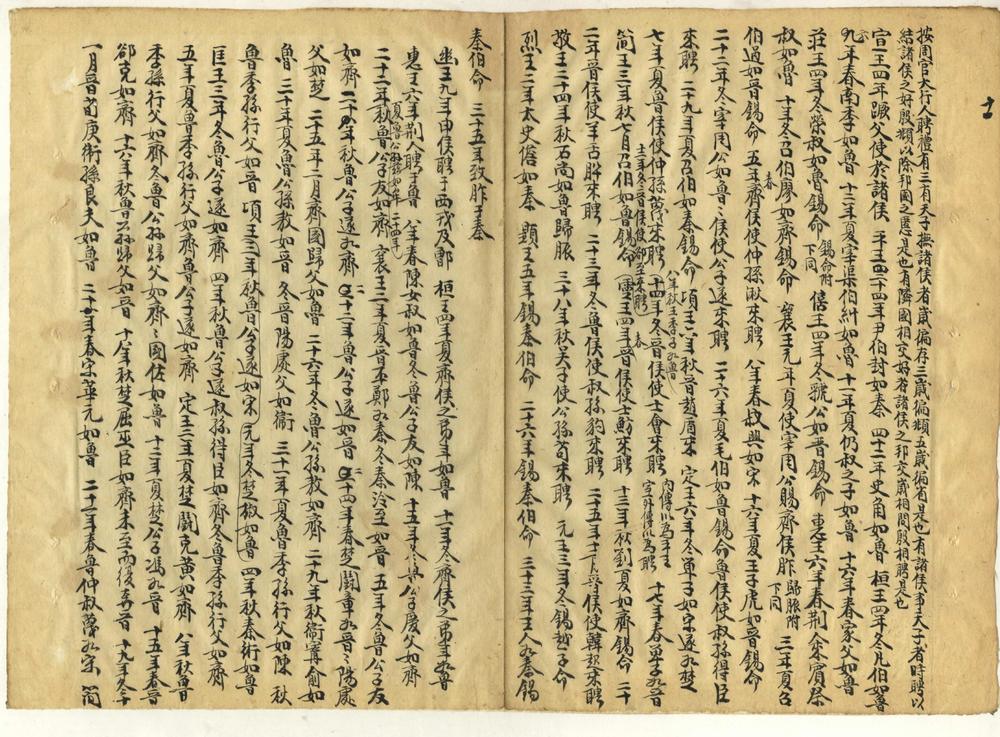 十一
按周官大行人聘禮有三有天子撫諸侯者歲徧存三歲徧頫五歲徧省是也有諸侯事天子者時聘以
結諸侯之好殷頫以除邦國之慝是也有隣國相交好者諸侯之邦交歲相問殷相聘是也
宣王四年蹶父使於諸侯 平王四十四年尹伯封如秦 四十二年史角如魯 桓王四年冬凡伯如魯
九年春南季如魯 十三年夏宰渠伯糾如魯 十一年夏仍叔之子如魯 十六年春家父如魯
莊王四年冬榮叔如魯錫命 錫命附下同 僖王四年冬虢公如晋錫命 惠王六年春荆人來賓祭
叔如魯 十年冬召伯廖如齊錫命 襄王元年夏使宰周公賜齊侯胙 歸脤附下同 三年夏召
伯過如晋錫命 五年春齊侯使仲孫湫來聘 八年春叔興如宋 十六年夏王子虎如晋錫命
二十二年冬宰周公如魯魯侯使公子遂來聘 二十六年夏毛伯如魯錫命魯侯使叔孫得臣
來聘 二十九年夏召伯如秦錫命 頃王六年秋晋趙盾來 定王六年冬單子如宋遂如楚
七年夏魯侯使仲孫蔑來聘 八年秋王季子如魯 十四年冬晋侯使士會來聘 內傳以為平王室外傳以為聘 十七年春單子如晋
簡王三年秋七月召伯如魯錫命 十一年冬晋侯使郤至來聘 靈王四年春晋侯使士魴來聘 十三年秋劉夏如齊錫命 二十
二年晋侯使羊舌肸來聘 二十三年冬魯侯使叔孫豹來聘 二十五年十一月晋侯使韓起來聘
敬王二十四年秋石尚如魯歸脤 三十八年秋吴子使公孫苟來聘 元王三年冬錫越子命
烈王二年太史儋如秦 顯王五年錫秦伯命 二十六年錫秦伯命 三十三年王人如秦錫
秦伯命 三十五年致胙于秦
幽王九年申侯聘于西戎及鄫 桓王四年夏齊侯之弟年如魯 十一年冬齊侯之弟年如魯
惠王六年荆人聘于魯 夏魯公 八年春陳女叔如魯冬魯公子友如陳 十五年冬魯公子慶父如齊
二十三年秋魯公子友如齊 二十四年 襄王三年夏晋丕鄭如秦冬秦泠至如晋 五年冬魯公子友
如齊 二十四年秋魯公子遂如齊 三十二年魯公子遂如晋 三十四年春楚鬭章如晋晋陽處
父如楚 二十五年二月齊國歸父如魯 二十六年冬魯公孫敖如齊 二十九年秋衞甯俞如
魯 三十年夏魯公孫敖如晋 冬晋陽處父如衞 三十一年夏魯季孫行父如陳 秋
魯季孫行父如晋 頃王三年秋魯公子遂如宋 元年冬楚椒如魯 四年秋秦術如魯
匡王三年冬魯公子遂如齊 四年秋魯公子遂叔孫得臣如齊冬魯季孫行父如齊
五年夏魯季孫行父如齊魯公子遂如齊 定王二年夏楚鬭克黄如齊 八年秋魯
季孫行父如齊冬魯公孫歸父如齊齊國佐如魯 十三年夏楚公子馮如晋 十五年春晋
郤克如齊 十六年秋魯公孫歸父如晋 十八年秋楚屈巫臣如齊未至而復奔晋 十九年冬十
一月晋荀庚衞孫良夫如魯 二十年春宋華元如魯 二十一年春魯仲叔蔑如宋 簡